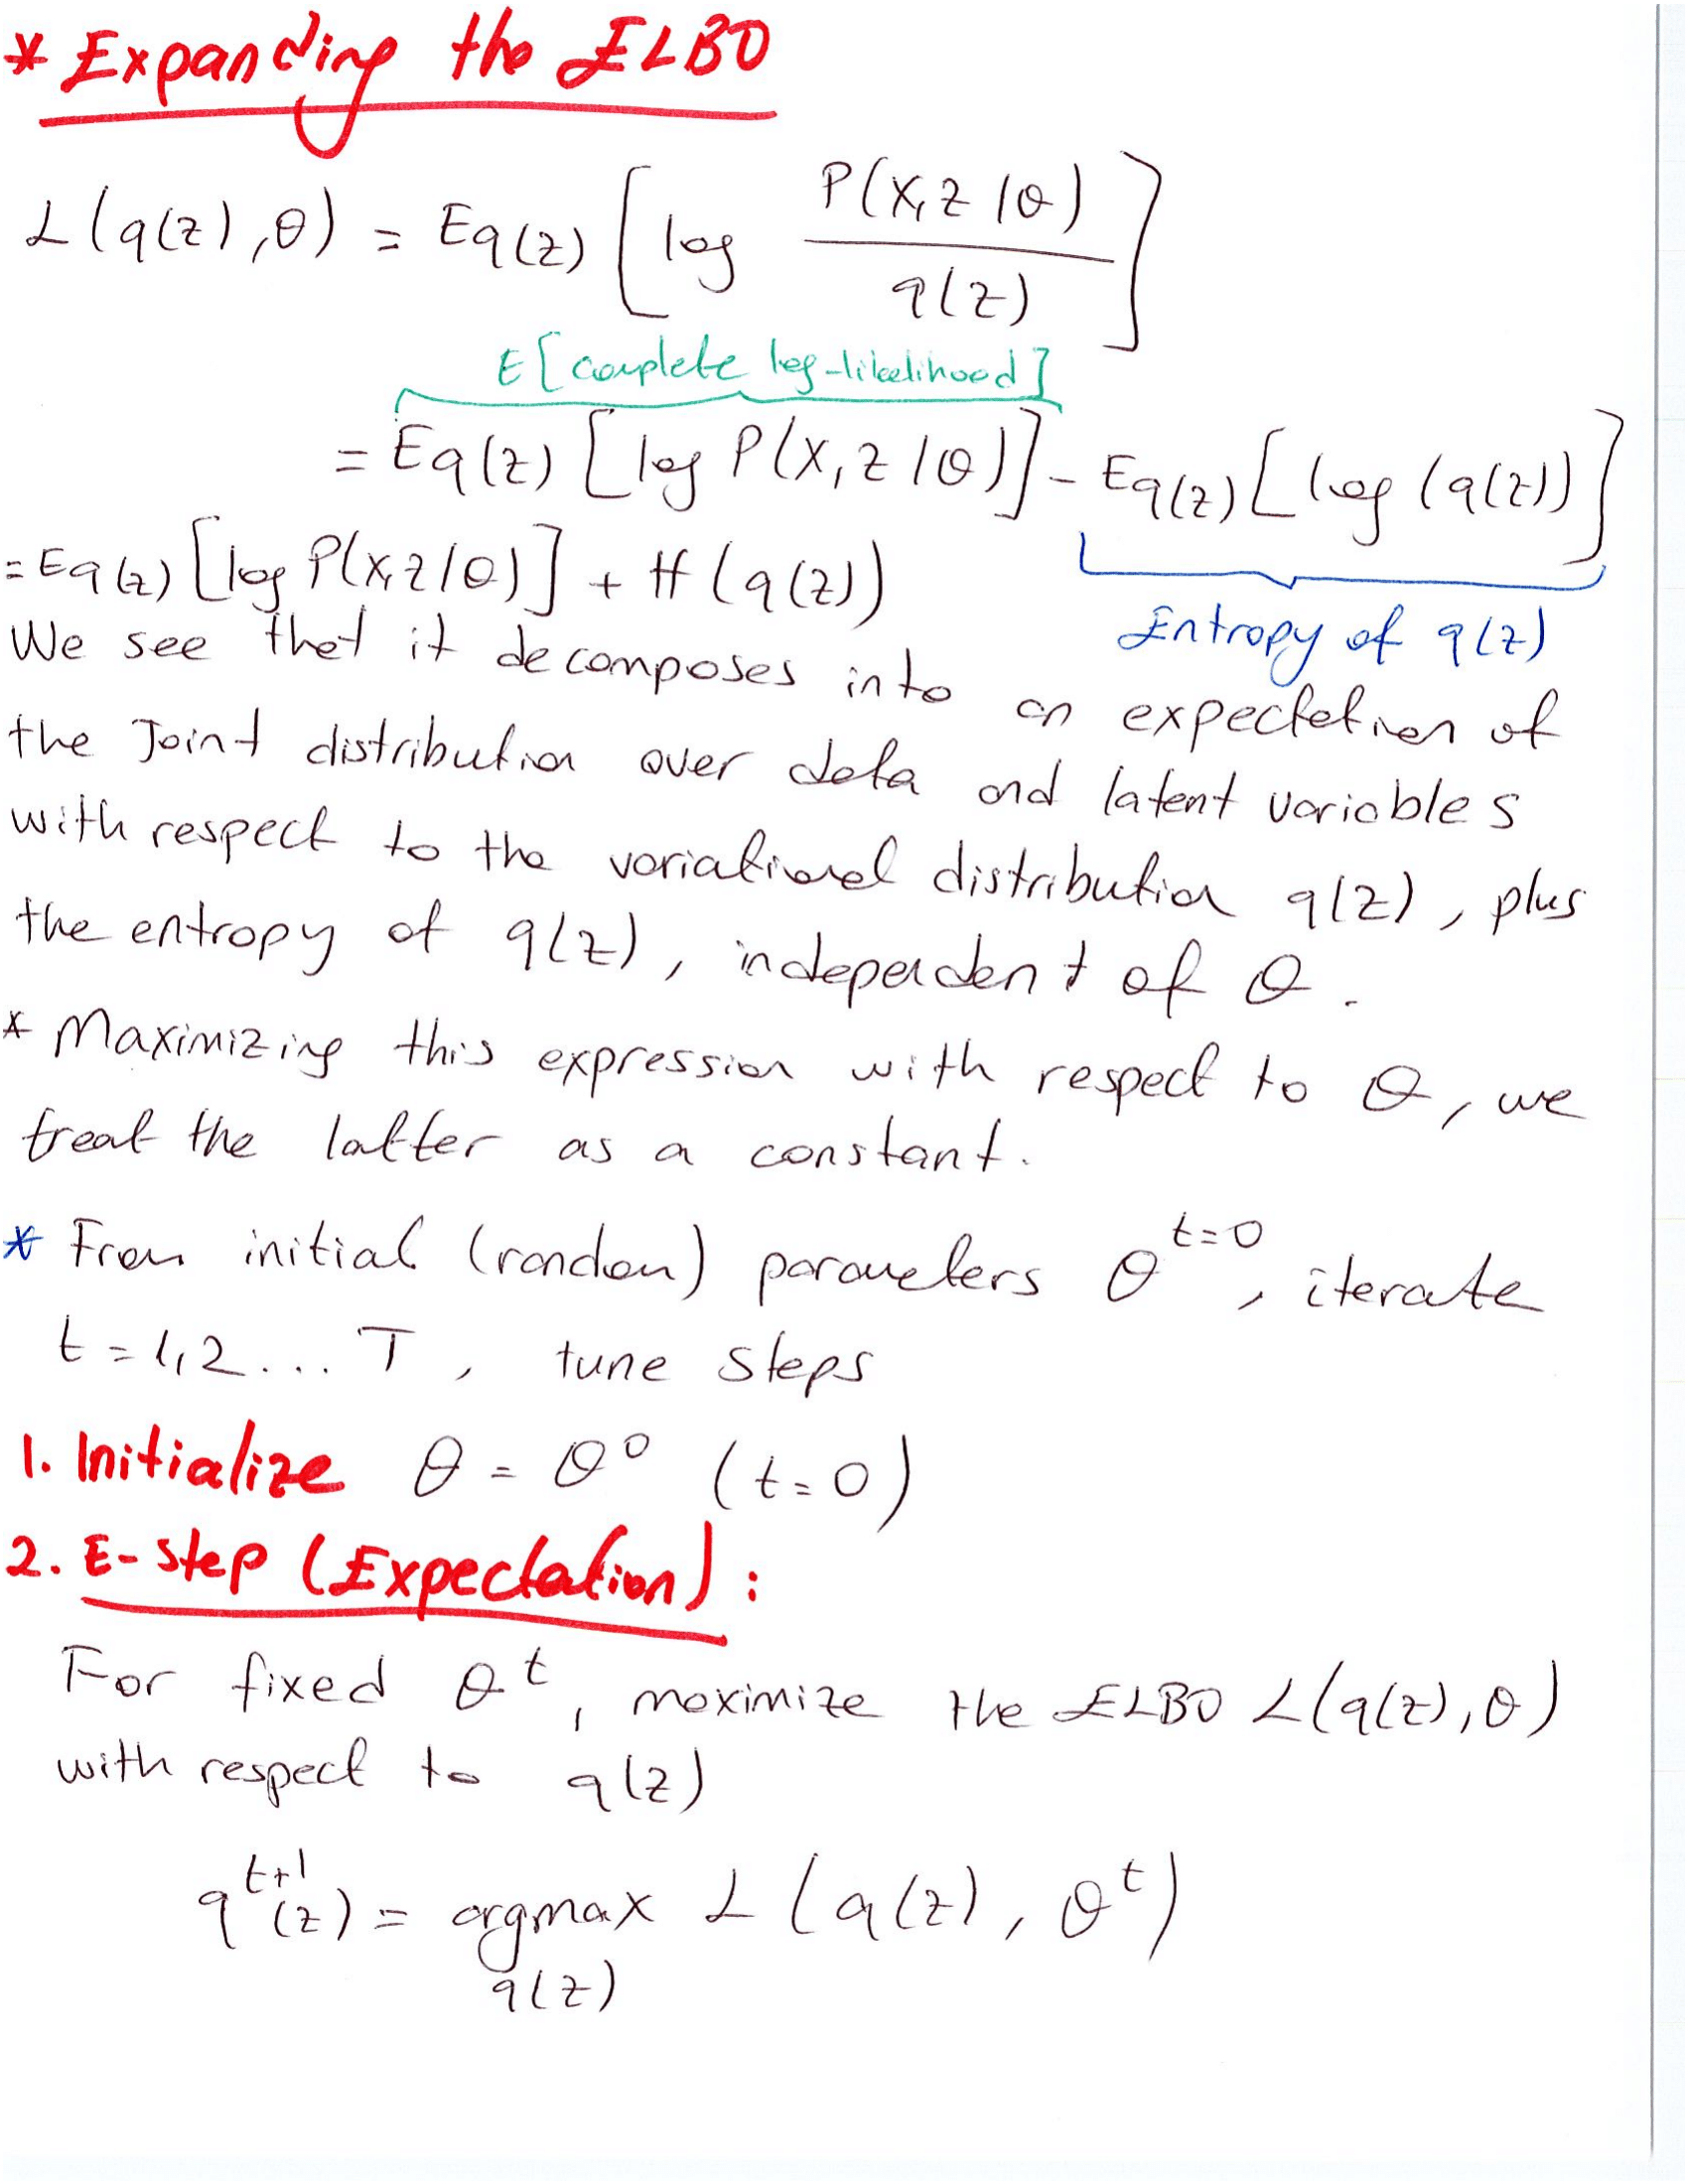 * Expanding the ELBO
L(q(z),θ) = Eq(z) [log P(x,z|θ) / q(z)]
E[complete log-likelihood]
= Eq(z) [log P(x,z|θ)] - Eq(z) [log(q(z))]
= Eq(z) [log P(x,z|θ)] + H(q(z))
Entropy of q(z)
We see that it decomposes into an expectation of
the Joint distribution over data and latent variables
with respect to the variational distribution q(z), plus
the entropy of q(z), independent of θ.
* Maximizing this expression with respect to θ, we
treat the latter as a constant.
* From initial (random) parameters θ^t=0, iterate
t = 1,2...T, tune steps
1. Initialize θ = θ^0 (t=0)
2. E-step (Expectation):
For fixed θ^t, maximize the ELBO L(q(z),θ)
with respect to q(z)
q^t+1(z) = argmax L(q(z), θ^t)
q(z)